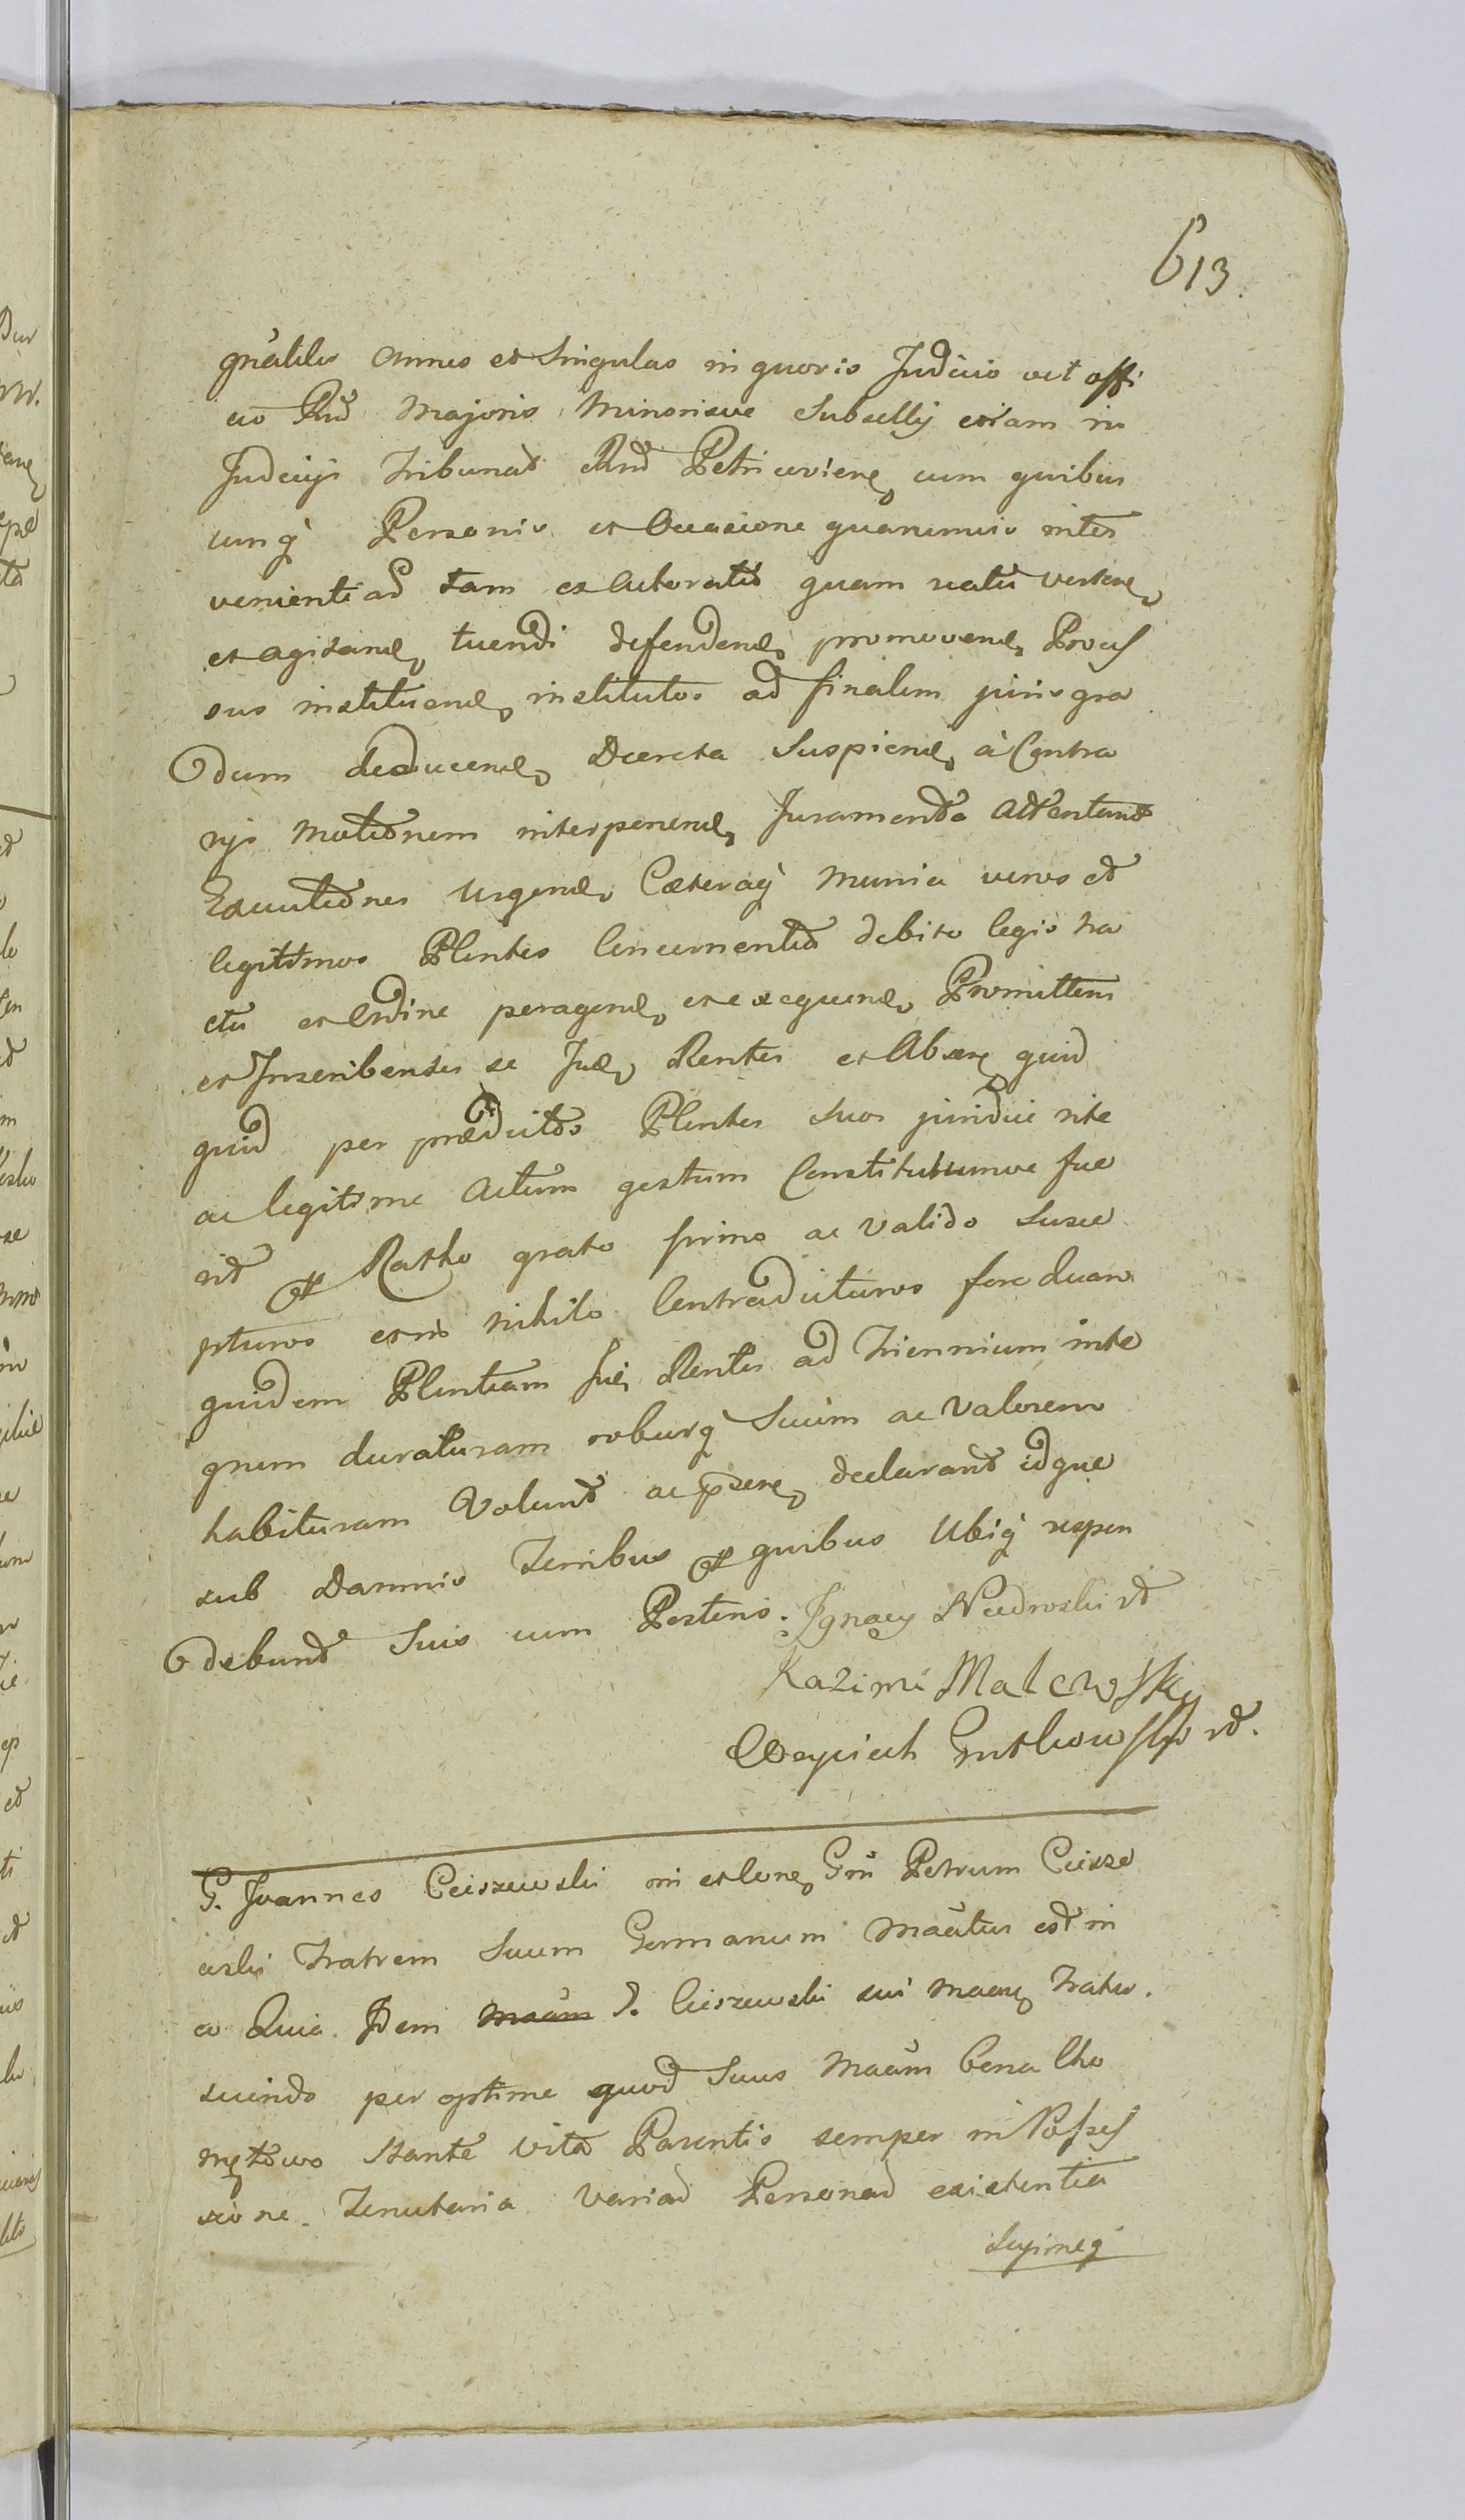 613.
gñaliles omnes et singulas in quovis Judicio vel offi
cio Rñi Majoris Minorisve Subsellij etiam in
Judicijs Tribunal Rñi Petricoviens cum quibus
cunq Personis et Occasione quacumvis inter
venienti ad tam ex Actoratu quam reatu vertend
et agitand tuendi defendend promovend Proces
sus instituend institutos ad finalem juris gra
dum deducend Decreta Suspiciend à Contra
rijs Motionem interponend Juramenta Attentand
Executiones Urgend Cæteraq munia veros et
legitimos Plentes Concernentia debito legis tra
ctu et Ordine peragend et exequend Promittens
et Inscribentes se Jud Rentes et Absens quid
quid per prædictos Plentes suos juridice rite
ac legitime Actum gestum Constitutumve fue
rit Ratho grato firmo ac valido susce
pturos et in nihilo Contradicturos fore duan
quidem Plentiam sui Rentes ad Triennium inte
grum duraturam roburq Suum ac Valorem
habituram Volunt ac pñsens declarant idque
sub Damnis Terribus quibus Ubiq respon
debunt Suis cum Posteris. Ignacy Nadroski rt
Kazimi Malewski
Woyciech Gutkowski rt.
G. Joannes Ciiszewski in et cone Gm Petrum Ciisze
wski Fratrem Suum Germanum Maatus est in
eo Quia Idem Maam G. Ciiszewski sui Maans Frater
sciendo per optime quod Suus Maam bona Cho
mętowo Stante vita Parentis semper in Posses
sione Tenutaria variad Personad existentia